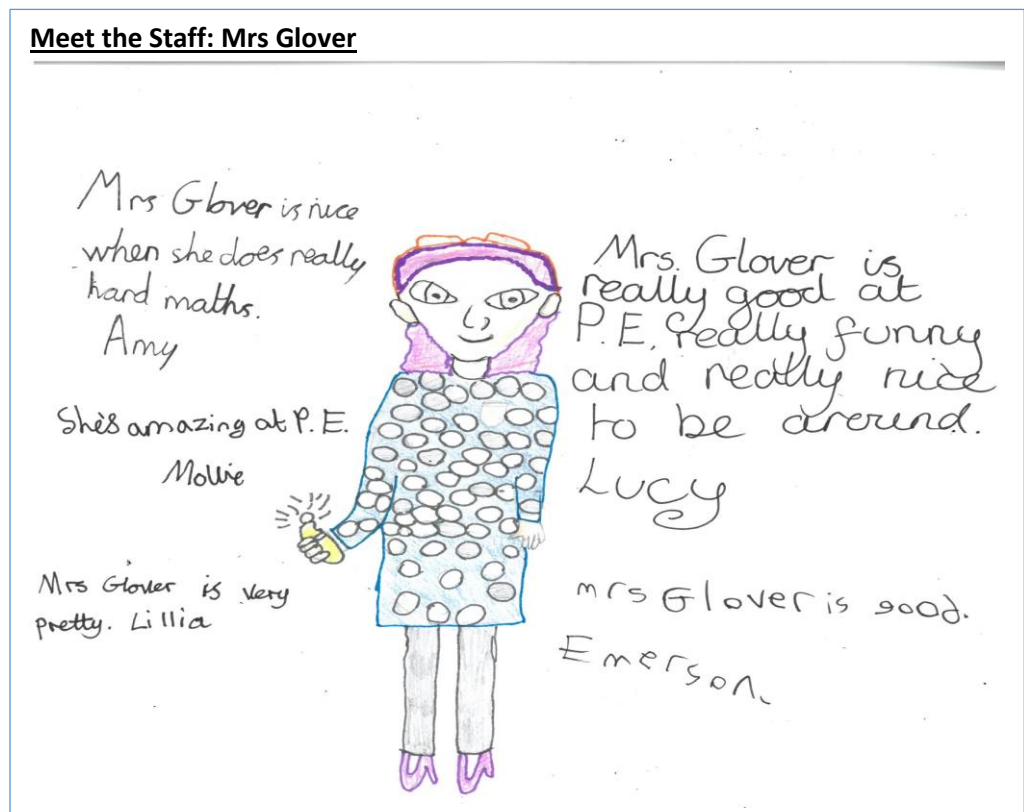 Meet the Staff: Mrs Glover
Mrs Glover is nice
when she does really
hard maths.
Amy
She's amazing at P.E.
Mollie
Mrs Glover is very
pretty. Lillia
Mrs. Glover is
really good at
P.E, really funny
and really nice
to be around.
Lucy
mrs Glover is good.
Emerson.